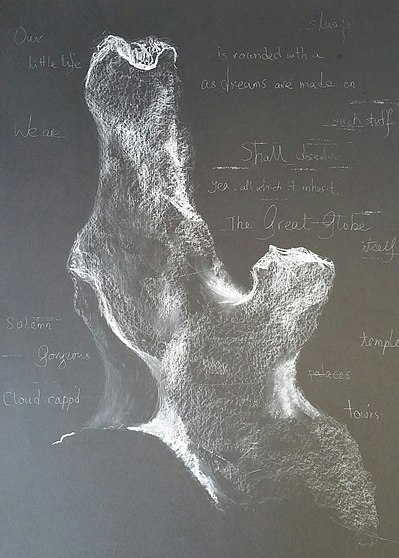 Our
sleep
little life
is rounded with a
as dreams are made on
such stuff
We are
Shall dissolve
yea, all which it inherit
The Great Globe
itself
Solemn
temple
Gorgeous
palaces
Cloud capp'd
towrs